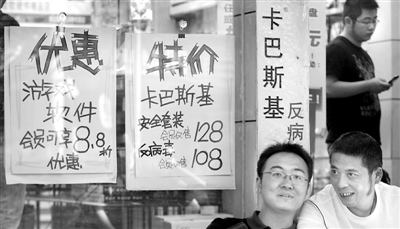 优惠
游戏
软件
会员可享8.8折
优惠
特价
卡巴斯基
安全套装
会员仅售128
反病毒
会员仅售108
卡巴斯基
反病